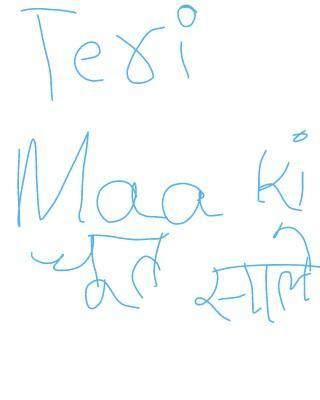 Teri
Maa ki
चूत साले